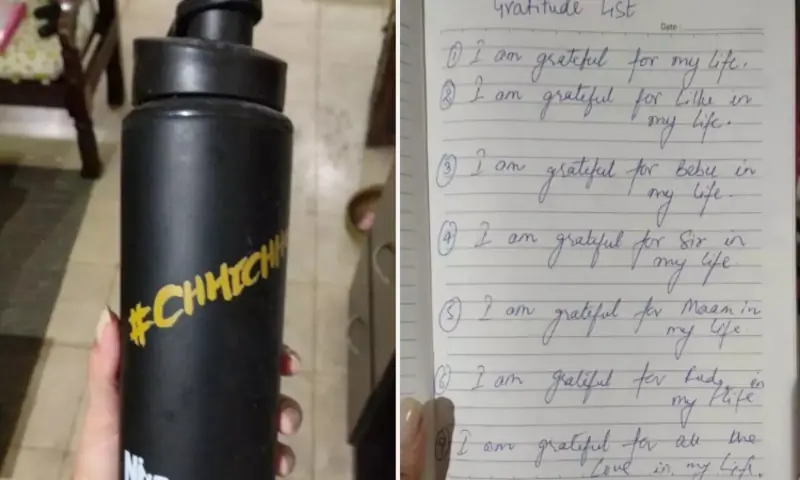 #CHHICHH
Gratitude List
Date :
① I am grateful for my life.
② I am grateful for Lilhe in
my life.
③ I am grateful for Bebu in
my life.
④ I am grateful for Sir in
my life
⑤ I am grateful for Maam in
my life
⑥ I am grateful for in
my life
I am grateful for all the
Love in my life.